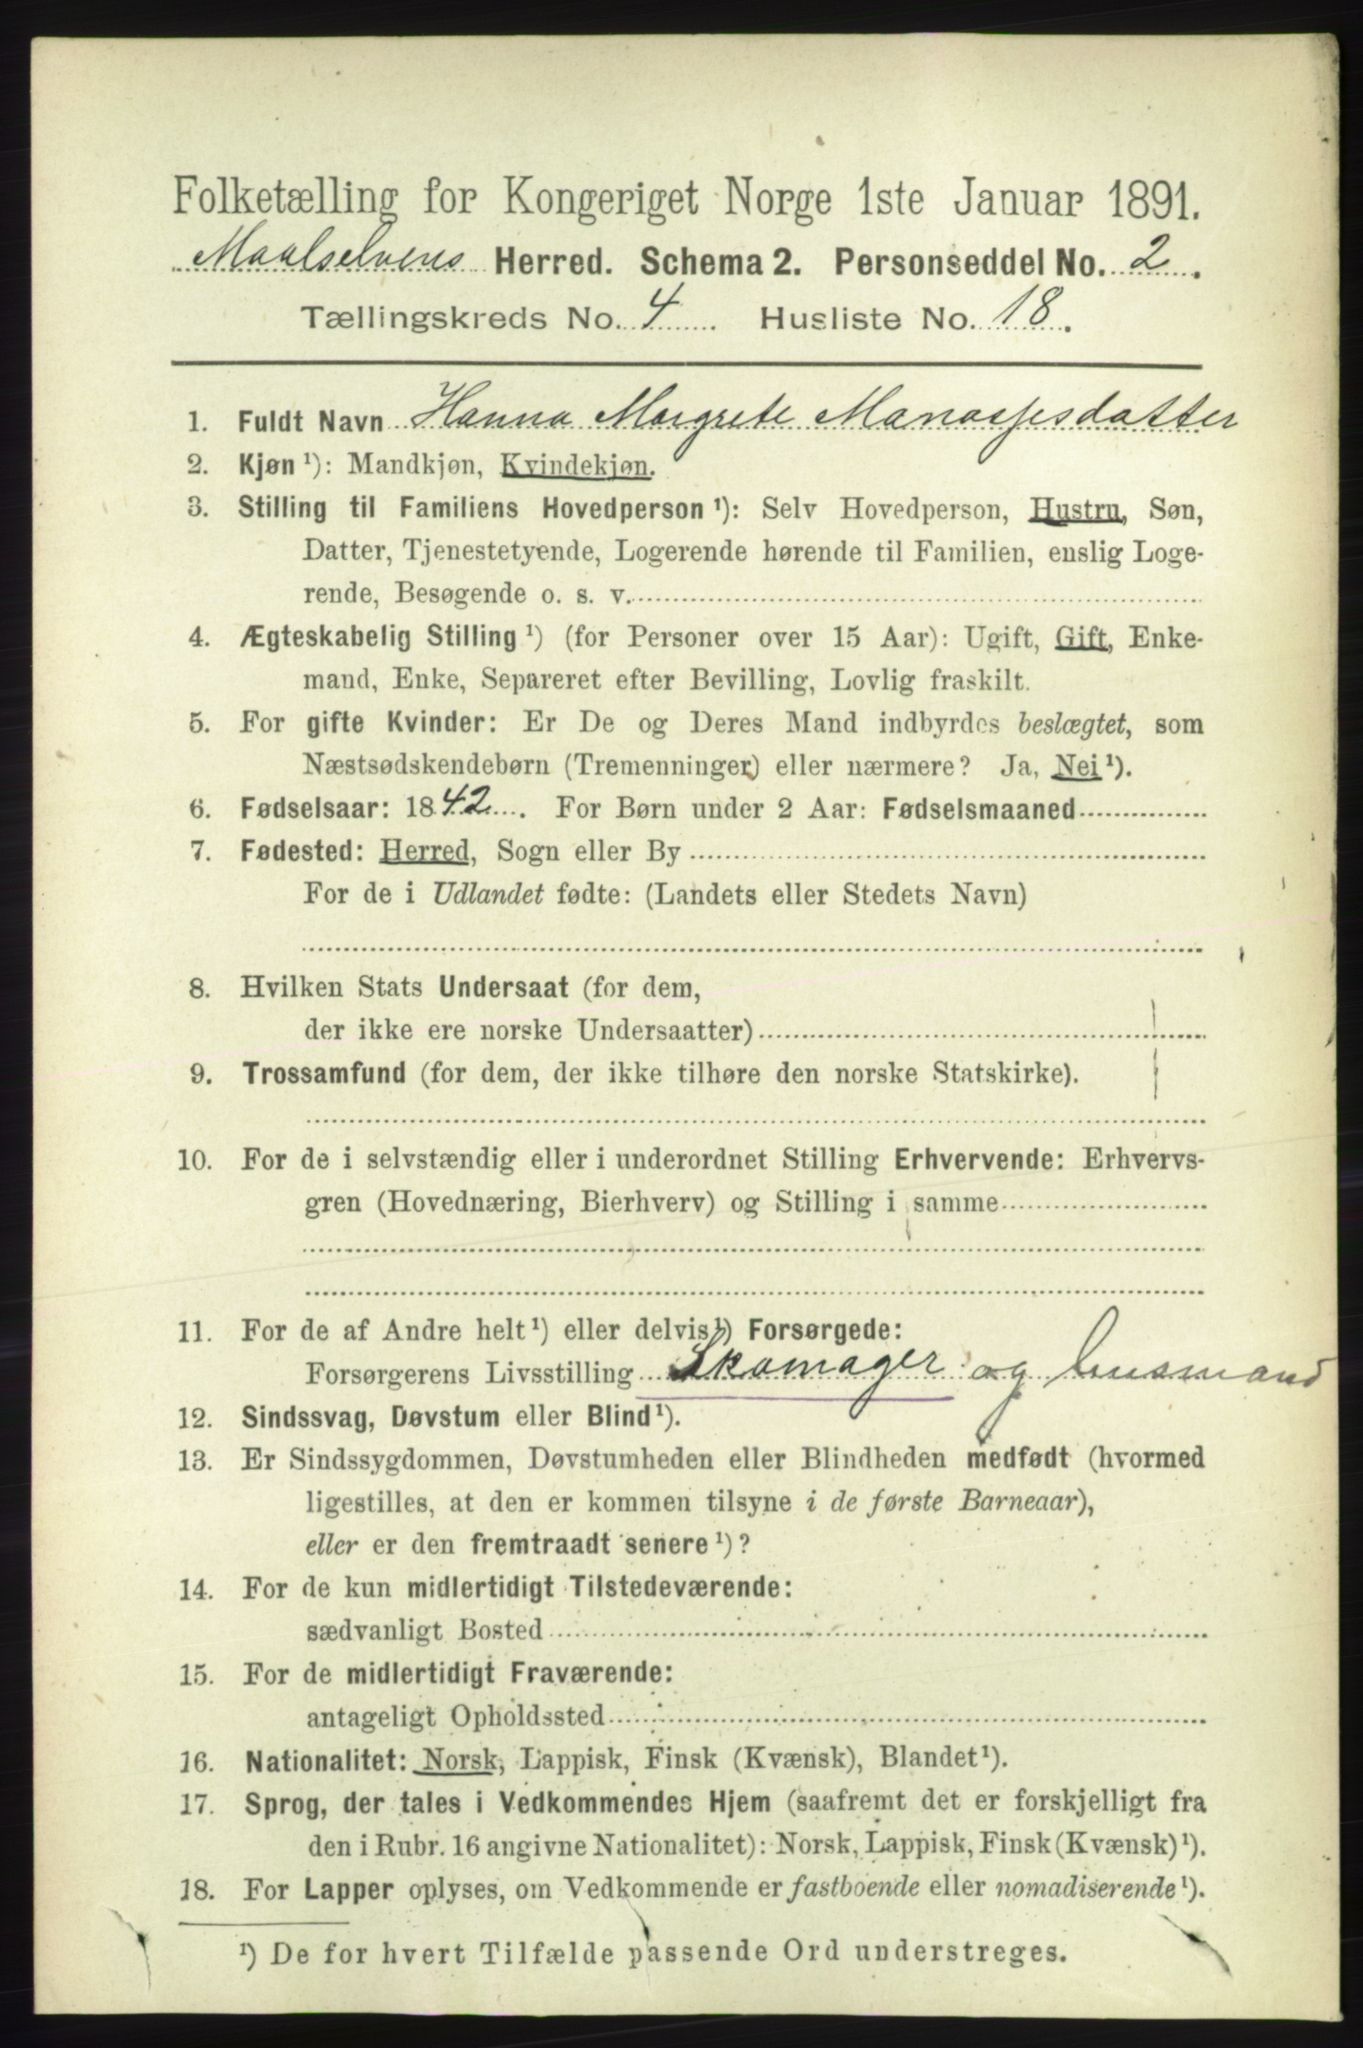 Folketælling for Kongeriget Norge 1ste Januar 1891.
Maalselvens Herred. Schema 2. Personseddel No. 2.
Tællingskreds No. 4. Husliste No. 18.
1. Fuldt Navn Hanna Margrete Manassesdatter
2. Kjøn ¹): Mandkjøn, Kvindekjøn.
3. Stilling til Familiens Hovedperson ¹): Selv Hovedperson, Hustru, Søn,
Datter, Tjenestetyende, Logerende hørende til Familien, enslig Loge-
rende, Besøgende o. s. v.
4. Ægteskabelig Stilling ¹) (for Personer over 15 Aar): Ugift, Gift, Enke-
mand, Enke, Separeret efter Bevilling, Lovlig fraskilt.
5. For gifte Kvinder: Er De og Deres Mand indbyrdes beslægtet, som
Næstsødskendebørn (Tremenninger) eller nærmere? Ja, Nei ¹).
6. Fødselsaar: 1842. For Børn under 2 Aar: Fødselsmaaned
7. Fødested: Herred, Sogn eller By
For de i Udlandet fødte: (Landets eller Stedets Navn)
8. Hvilken Stats Undersaat (for dem,
der ikke ere norske Undersaatter)
9. Trossamfund (for dem, der ikke tilhøre den norske Statskirke).
10. For de i selvstændig eller i underordnet Stilling Erhvervende: Erhvervs-
gren (Hovednæring, Bierhverv) og Stilling i samme
11. For de af Andre helt ¹) eller delvis ¹) Forsørgede:
Forsørgerens Livsstilling Skomager og husmand
12. Sindssvag, Døvstum eller Blind ¹).
13. Er Sindssygdommen, Døvstumheden eller Blindheden medfødt (hvormed
ligestilles, at den er kommen tilsyne i de første Barneaar),
eller er den fremtraadt senere ¹)?
14. For de kun midlertidigt Tilstedeværende:
sædvanligt Bosted
15. For de midlertidigt Fraværende:
antageligt Opholdssted
16. Nationalitet: Norsk, Lappisk, Finsk (Kvænsk), Blandet ¹).
17. Sprog, der tales i Vedkommendes Hjem (saafremt det er forskjelligt fra
den i Rubr. 16 angivne Nationalitet): Norsk, Lappisk, Finsk (Kvænsk) ¹).
18. For Lapper oplyses, om Vedkommende er fastboende eller nomadiserende ¹).
¹) De for hvert Tilfælde passende Ord understreges.